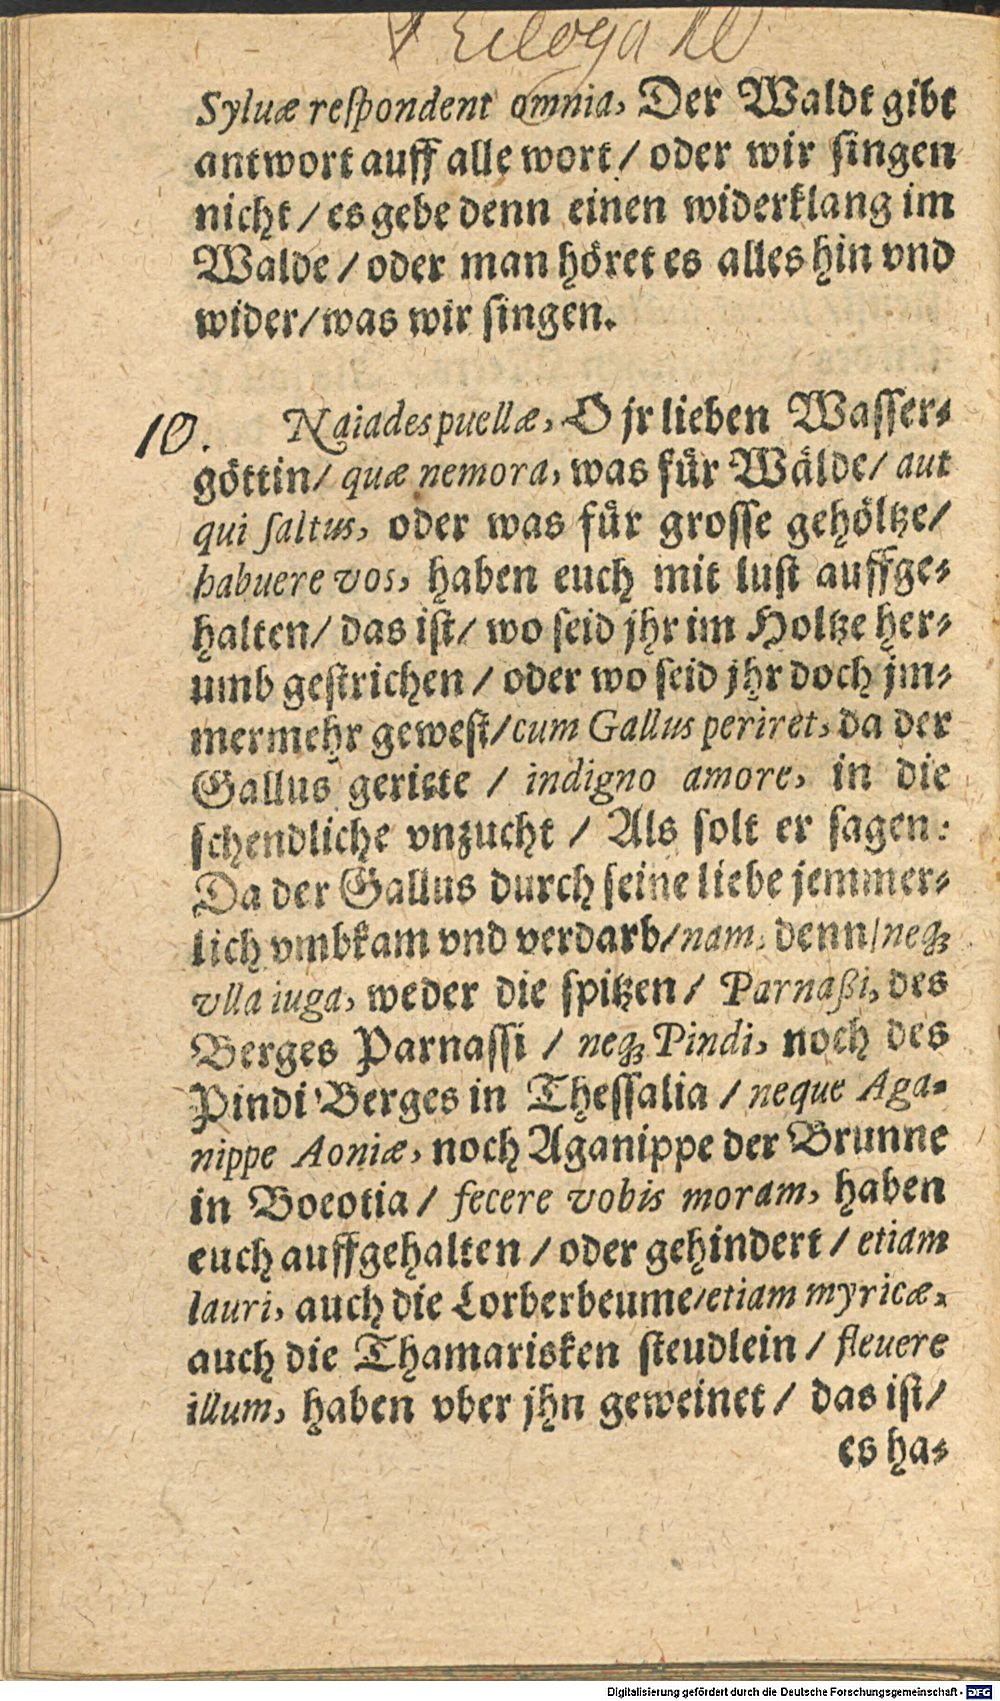 Ecloga
Syluæ reſpondent omnia, Der Waldt gibt
antwort auff alle wort / oder wir ſingen
nicht / es gebe denn einen widerklang im
Walde / oder man höret es alles hin vnd
wider / was wir ſingen.
10. Naiades puellæ, O jr lieben Waſſer⸗
göttin / quæ nemora, was für Wälde / aut
qui ſaltus, oder was für groſſe gehöltze /
habuere vos, haben euch mit luſt auffge⸗
halten / das iſt / wo ſeid jhr im Holtze her⸗
umb geſtrichen / oder wo ſeid jhr doch jm⸗
mermehr geweſt / cum Gallus periret, da der
Gallus geriete / indigno amore, in die
ſchendliche vnzucht / Als ſolt er ſagen:
Da der Gallus durch ſeine liebe jemmer⸗
lich vmbkam vnd verdarb / nam, denn / neqꝫ
vlla iuga, weder die ſpitzen / Parnaßi, des
Berges Parnaſſi / neqꝫ Pindi, noch des
Pindi Berges in Theſſalia / neque Aga⸗
nippe Aoniæ, noch Aganippe der Brunne
in Boeotia / fecere vobis moram, haben
euch auffgehalten / oder gehindert / etiam
lauri, auch die Lorberbeume / etiam myricæ,
auch die Thamarisken ſteudlein / fleuere
illum, haben vber jhn geweinet / das iſt /
es ha⸗
Digitalisierung gefördert durch die Deutsche Forschungsgemeinschaft - DFG